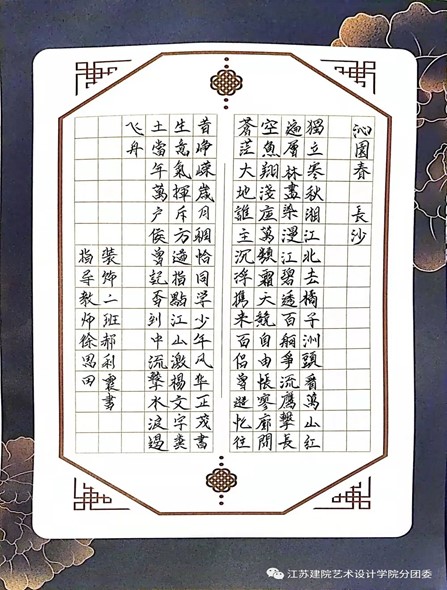 沁園春 長沙
獨立寒秋湘江北去橘子洲頭看萬山紅
遍層林盡染漫江碧透百舸爭流鷹擊長
空魚翔淺底萬類霜天競自由悵寥廓問
蒼茫大地誰主沉浮携来百侣曾遊忆往
昔崢嶸歲月稠恰同学少年风华正茂書
生意氣揮斥方遒指點江山激揚文字糞
土當年萬户侯曾記否到中流擊水浪遏
飞舟
装饰二班郝利震書
指导教师徐思田
江苏建院艺术设计学院分团委